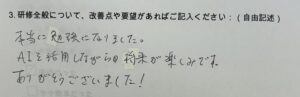 3. 研修全般について、改善点や要望があればご記入ください:(自由記述)
本当に勉強になりました。
AIを活用しながらの将来が楽しみです。
ありがとうございました!